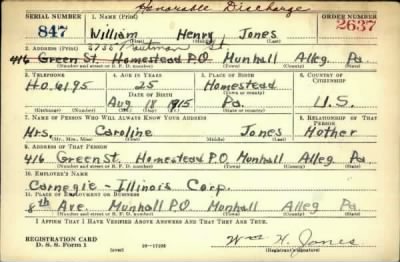 Honorable Discharge
SERIAL NUMBER 1. NAME (Print) ORDER NUMBER
847 William Henry Jones 2637
(First) (Middle) (Last)
2. ADDRESS (Print)
416 Green St. Homestead P.O. Munhall Alleg. Pa.
(Number and street or R. F. D. number) (Town) (County) (State)
3. TELEPHONE 4. AGE IN YEARS 5. PLACE OF BIRTH 6. COUNTRY OF CITIZENSHIP
HO. 6195 25 Homestead
DATE OF BIRTH
Aug 18 1915 Pa. U.S.
(Exchange) (Number) (Mo.) (Day) (Yr.) (State or country)
7. NAME OF PERSON WHO WILL ALWAYS KNOW YOUR ADDRESS 8. RELATIONSHIP OF THAT PERSON
Mrs. Caroline Jones Mother
(Mr., Mrs., Miss) (First) (Middle) (Last)
9. ADDRESS OF THAT PERSON
416 Green St. Homestead P.O. Munhall Alleg Pa.
(Number and street or R. F. D. number) (Town) (County) (State)
10. EMPLOYER'S NAME
Carnegie - Illinois Corp.
11. PLACE OF EMPLOYMENT OR BUSINESS
8th Ave. Munhall P.O. Munhall Alleg Pa.
(Number and street or R. F. D. number) (Town) (County) (State)
I AFFIRM THAT I HAVE VERIFIED ABOVE ANSWERS AND THAT THEY ARE TRUE.
REGISTRATION CARD
D. S. S. Form 1 (over) Wm. H. Jones